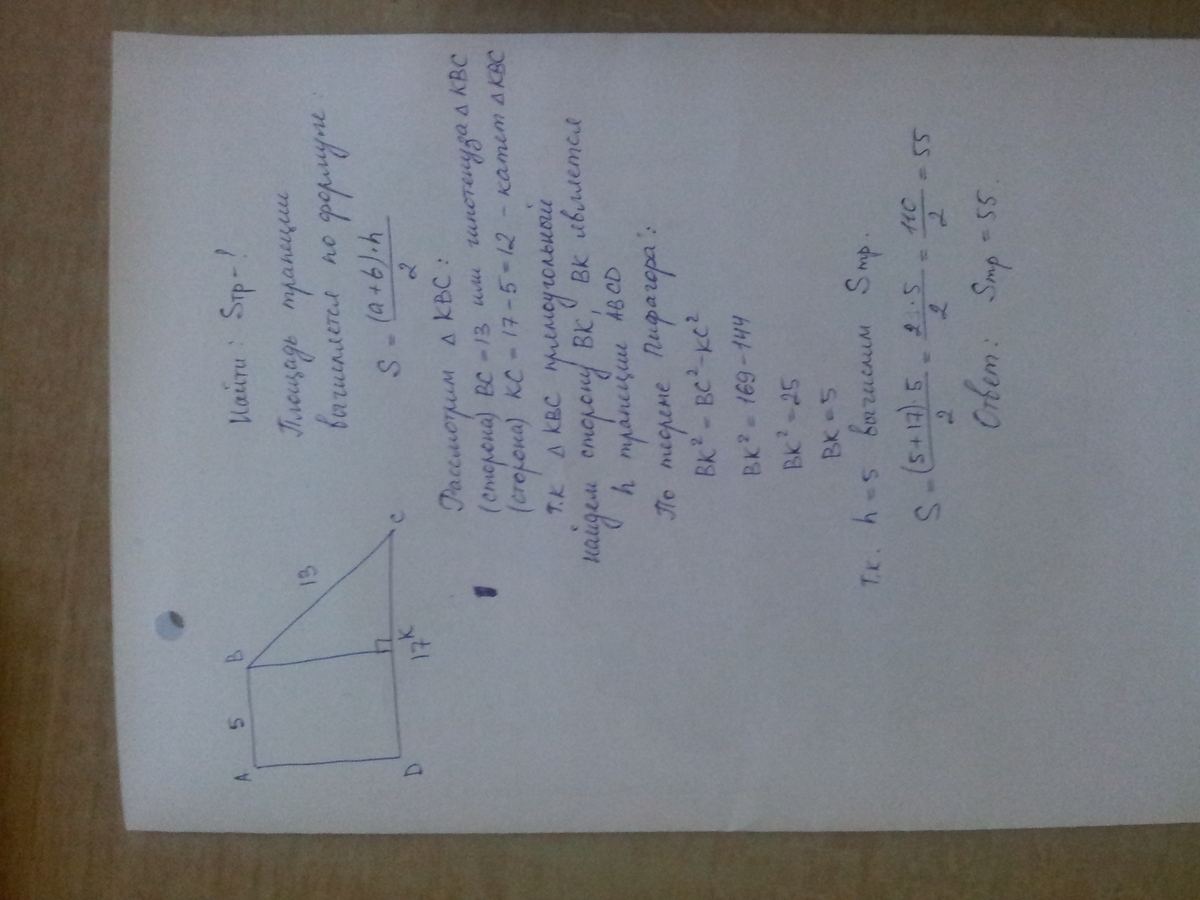 A 5 B
13
D 17 K C
Найти: Sтр-?
Площадь трапеции
вычисляется по формуле:
S = (a+b)·h / 2
Рассмотрим Δ KBC:
(сторона) BC = 13 или гипотенуза Δ KBC
(сторона) KC = 17-5=12 - катет Δ KBC
т.к Δ KBC прямоугольный
найдем сторону BK, BK является
h трапеции ABCD
По теореме Пифагора:
BK² = BC² - KC²
BK² = 169 - 144
BK² = 25
BK = 5
т.к. h = 5 вычислим Sтр.
S = (5+17)·5 / 2 = ·5 / 2 = 110 / 2 = 55
Ответ: Sтр = 55.